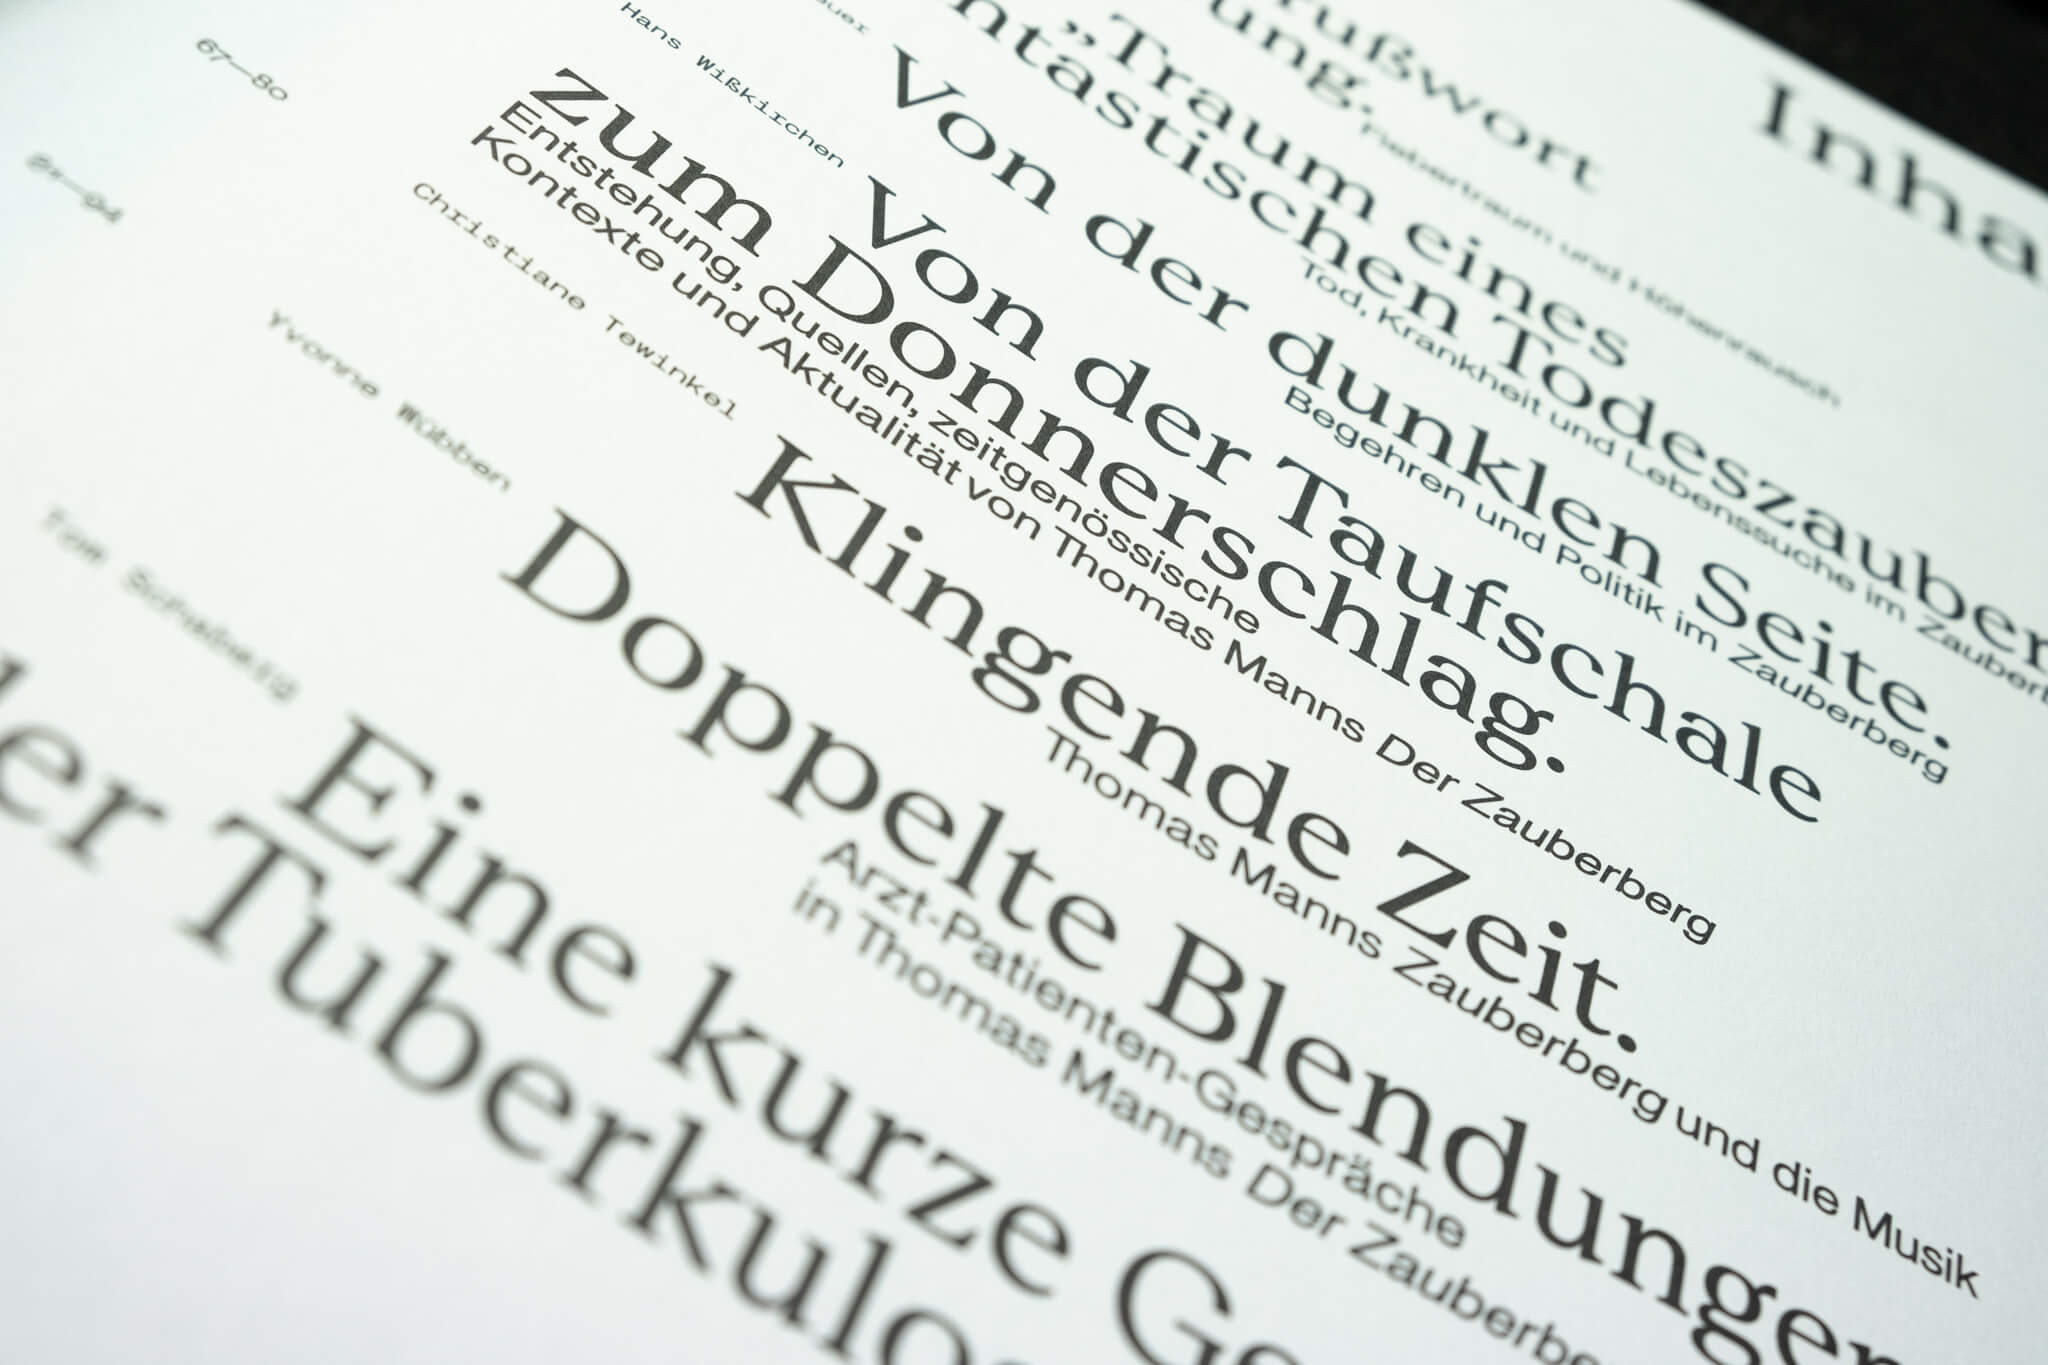 Inha
rußwort
ung.
Fiebertraum und Höhenrausch
„Traum eines
ntastischen Todeszauber
Tod, Krankheit und Lebenssuche im Zauber
auer
Von der dunklen Seite.
Begehren und Politik im Zauberberg
Hans Wißkirchen
Von der Taufschale
zum Donnerschlag.
Entstehung, Quellen, zeitgenössische
Kontexte und Aktualität von Thomas Manns Der Zauberberg
67—80
Christiane Tewinkel
Klingende Zeit.
Thomas Manns Zauberberg und die Musik
81—94
Yvonne Wübben
Doppelte Blendungen
Arzt-Patienten-Gespräche
in Thomas Manns Der Zauberbe
Tom Schaberg
Eine kurze Ge
der Tuberkulo